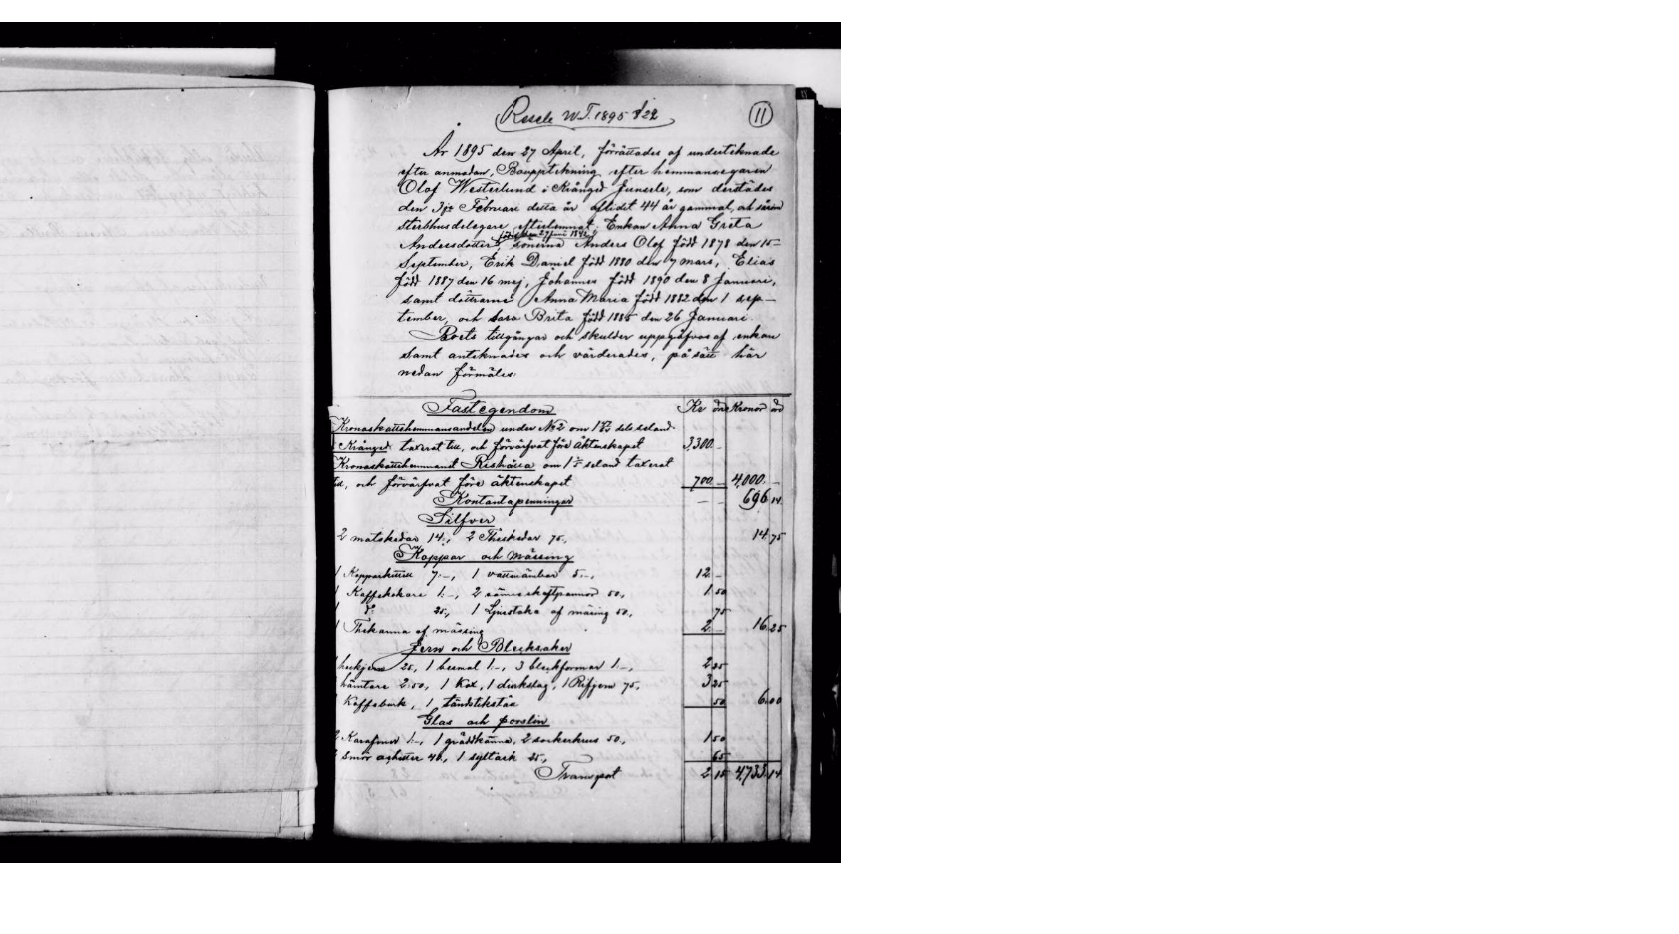 Resele W.T. 1895 § 22
11
År 1895 den 27 April, förrättades af undertecknade
efter anmodan, Bouppteckning efter hemmansegaren
Olof Westerlund i Krånged Junsele, som derstädes
den 3je Februari detta år aflidit 44 år gammal, och såsom
sterbhusdelegare efterlemnat; Enkan Anna Greta
född den 29 juni 1842
Andersdotter, sönerna Anders Olof född 1878 den 15
September, Erik Daniel född 1880 den 7 mars, Elias
född 1887 den 16 mej, Johannes född 1890 den 8 Januari,
samt döttrarne Anna Maria född 1882 den 1 sep-
tember, och Sara Brita född 1885 den 26 Januari.
Boets tillgångar och skulder uppgåfvos af enkan
samt antecknades och värderades, på sätt här
nedan förmäles:
Fast egendom Kr öre Kronor öre
Kronoskattehemmansandelen under No 2 om seland
Krånged taxerat till, och förvärfvat före äktenskapet 3,300. —
Kronoskattehemmanet om seland taxerat
till, och förvärfvat före äktenskapet 700. — 4,000. —
Kontanta penningar — — 696 14
Silfver
2 matskedar 14:, 2 Theskedar 75, 14 75
Koppar och mässing
1 Kopparkittel 7:—, 1 5:—, 12 —
1 Kaffekokare 1:—, 2 50, 1 50
1 do 25, 1 Ljusstake af mäsing 50, 75
1 Thekanna af mässing 2 — 16 25
Jern och Blecksaker
25, 1 besmal 1:—, 3 bleckformar 1:—, 2 25
hämtare 2:50, 1 1 durkslag, 1 Rifjern 75, 3 25
Kaffeburk, 1 50 6 00
Glas och porslin
2 Karafiner 1:—, 1 gräddkanna, 2 sockerkrus 50, 1 50
2 Smör 40, 1 25, 65
Transport 2 15 4,733 14